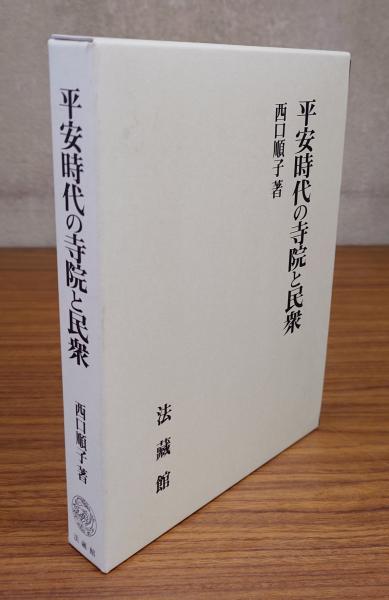 平安時代の寺院と民衆
西口順子著
法藏館
平安時代の寺院と民衆
西口順子著
法藏館